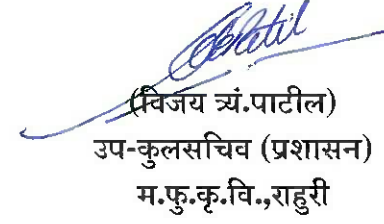 (विजय त्र्यं.पाटील)
उप-कुलसचिव (प्रशासन)
म.फु.कृ.वि.,राहुरी